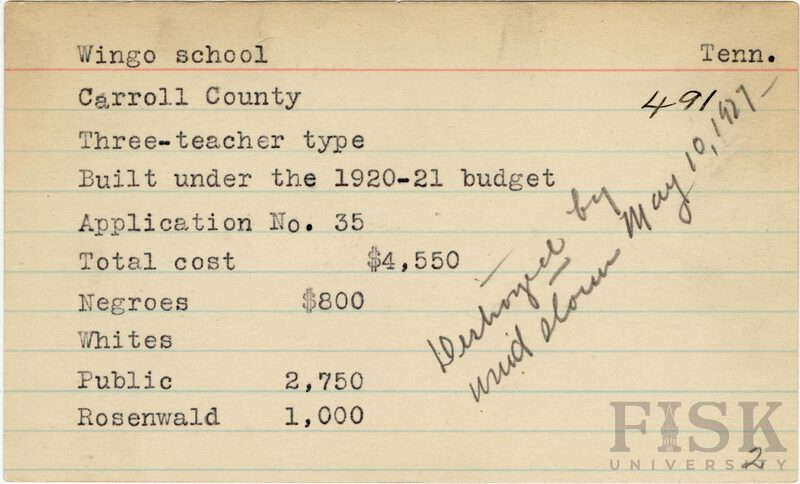 Wingo school Tenn.
Carroll County 491
Three-teacher type
Built under the 1920-21 budget
Application No. 35
Total cost $4,550
Negroes $800
Whites
Public 2,750
Rosenwald 1,000
Destroyed by
wind storm May 10, 1927-
FISK
UNIVERSITY
2